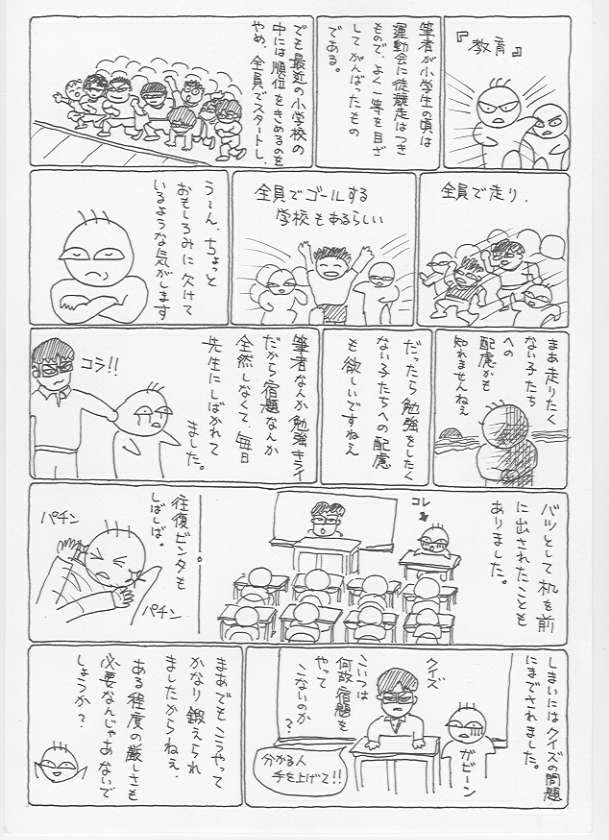 『教育』
筆者が小学生の頃は
運動会に徒競走はつき
もので、よく一等を目ざ
してがんばったもの
である。
でも最近の小学校の
中には順位をきめるのを
やめ、全員でスタートし、
全員で走り、
全員でゴールする
学校もあるらしい
う〜ん、ちょっと
おもしろみに欠けて
いるような気がします
まあ走りたく
ない子たち
への
配慮かも
知れませんねえ
だったら勉強をしたく
ない子たちへの配慮
も欲しいですねえ
筆者なんか勉強キライ
だから宿題なんか
全然しなくて、毎日
先生にしばかれて
ました。
コラ!!
バツとして机を前
に出されたことも
ありました。
コレ
往復ビンタも
しばしば。
パチン
パチン
しまいにはクイズの問題
にまでされました。
クイズ
こいつは
何故宿題を
やって
こないのか
?
ガビーン
分かる人
手を上げて!!
まあでもこうやって
かなり鍛えられ
ましたからねぇ、
ある程度の厳しさも
必要なんじゃあないで
しょうか?